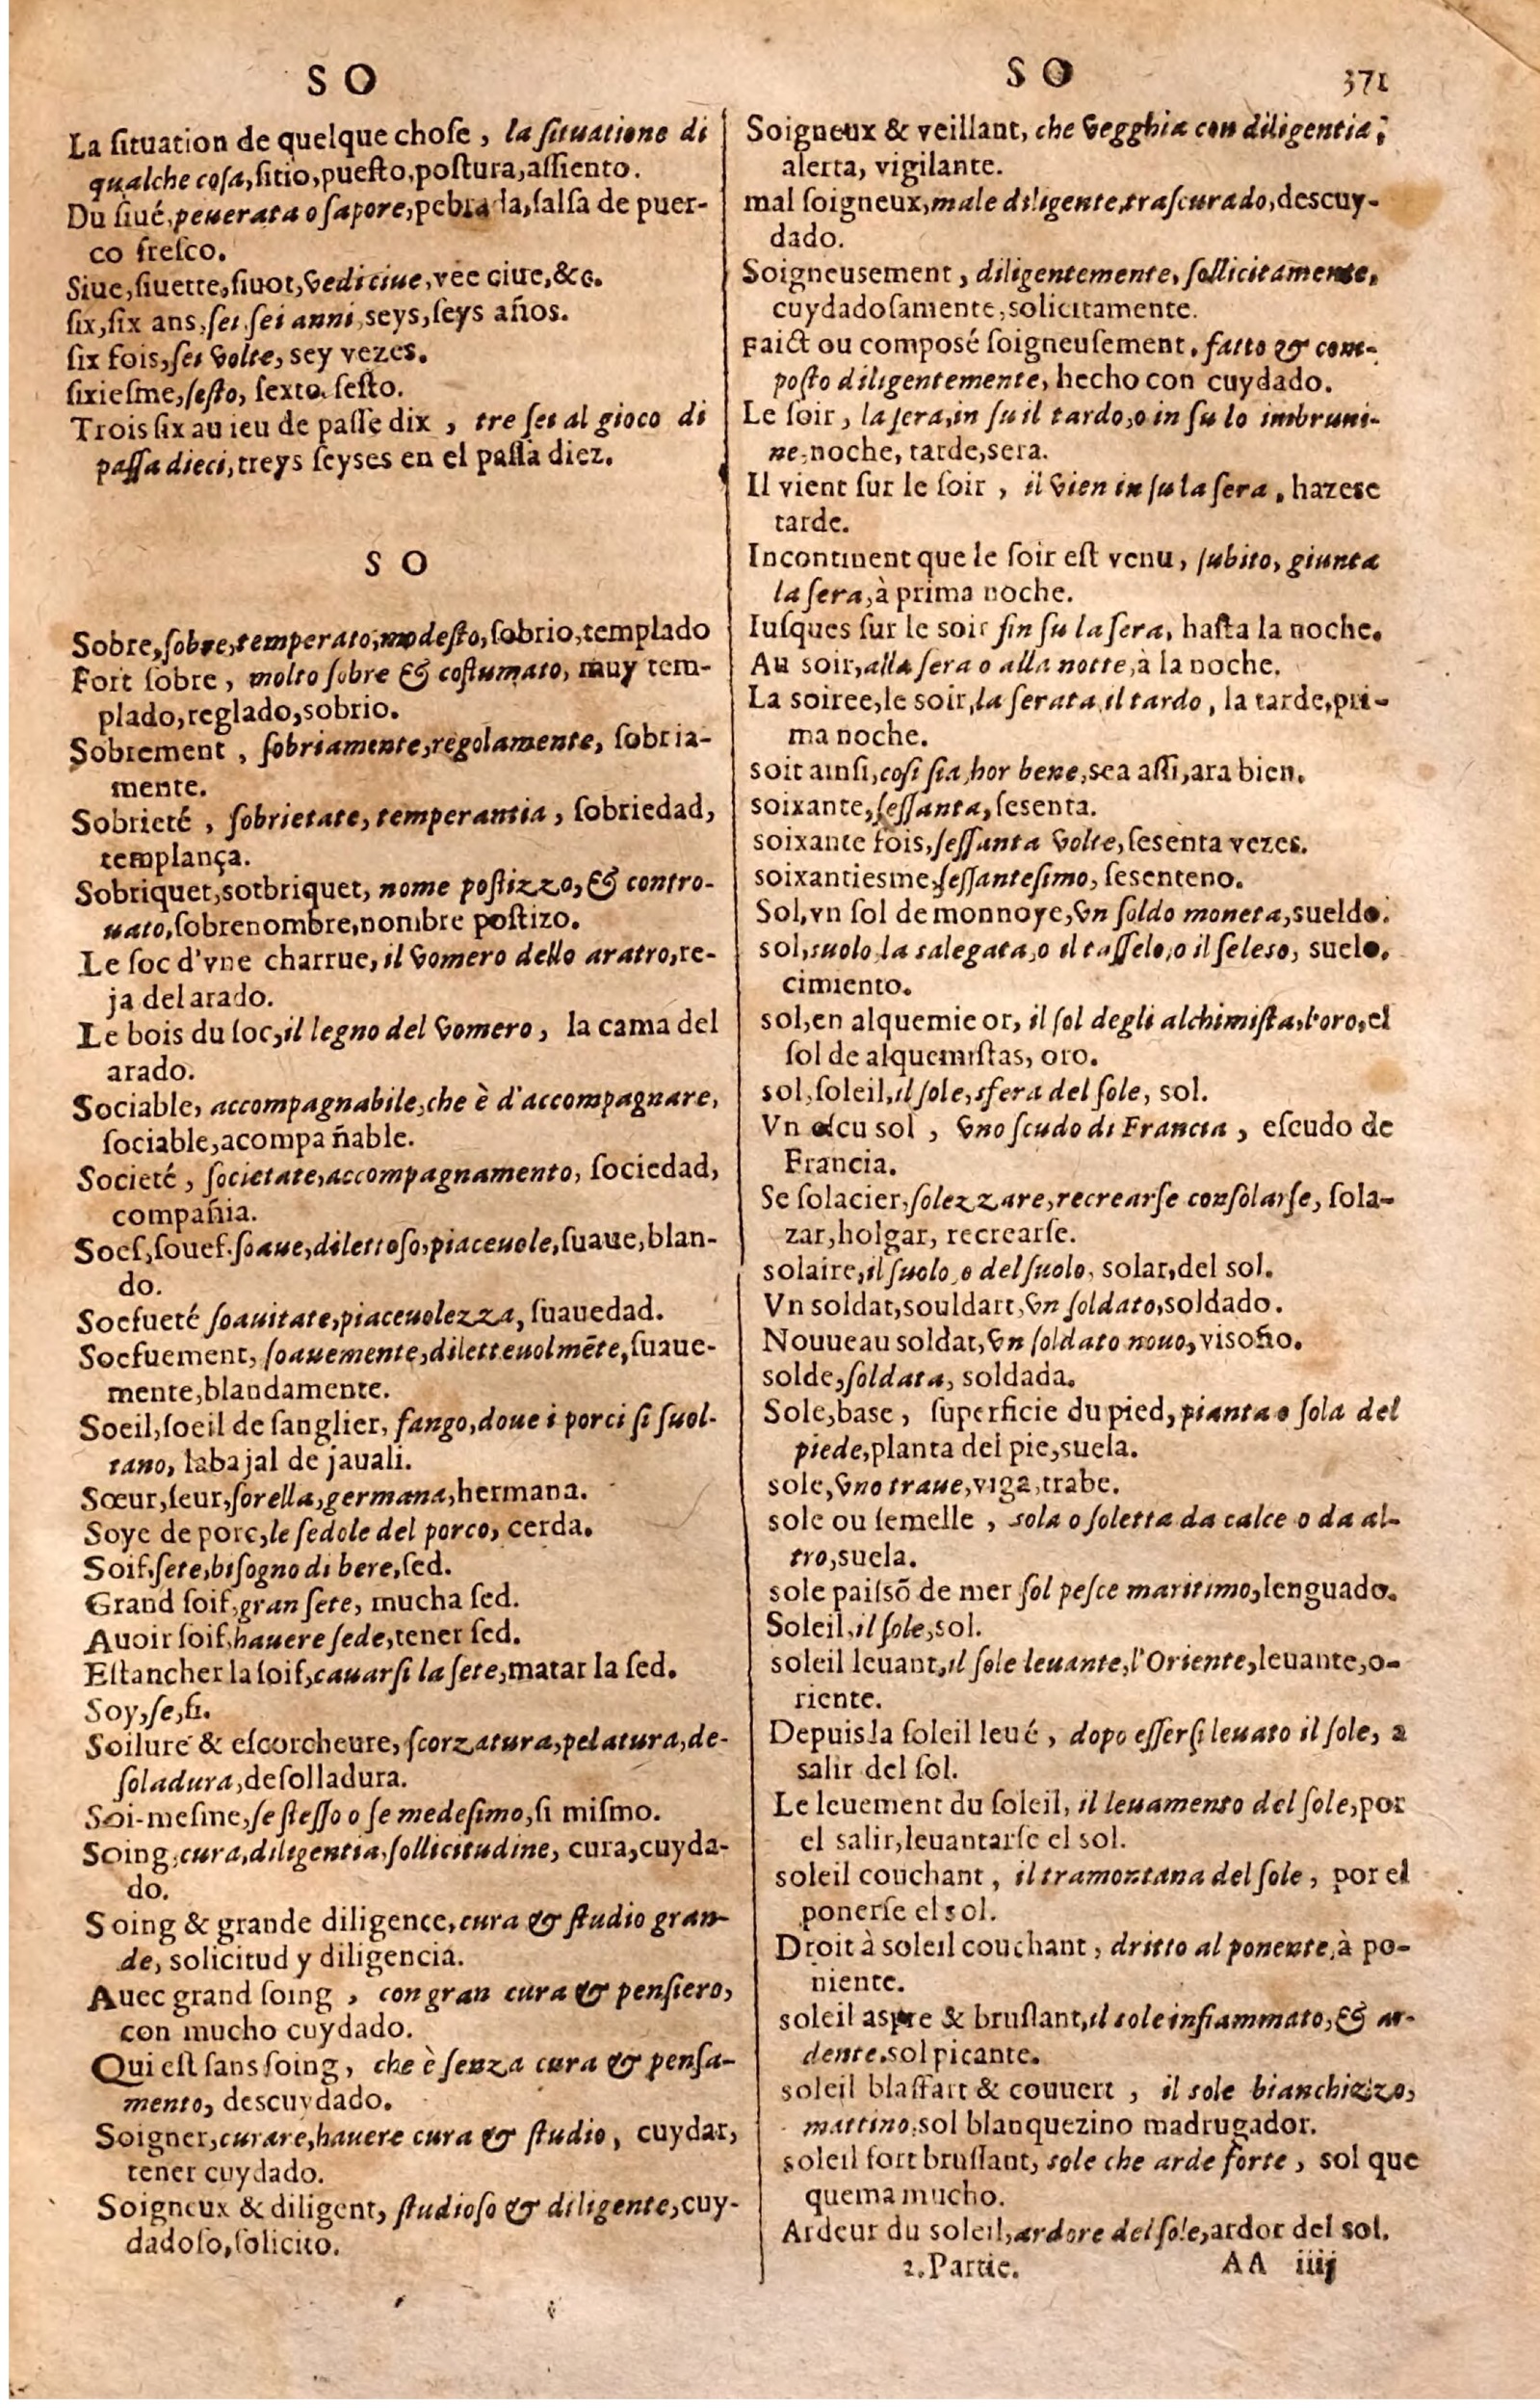 S O
La ſituation de quelque choſe, la ſituatione di
qualche coſa, ſitio, pueſto, poſtura, aſſiento.
Du ſiué, peuerata o ſapore, pebrada, ſalſa de puer-
co freſco.
Siue, ſiuette, ſiuot, vedi ciue, vee ciue, &c.
ſix, ſix ans, ſei ſei anni, seys, ſeys años.
ſix fois, ſei volte, sey vezes.
ſixieſme, ſeſto, ſexto ſeſto.
Trois ſix au ieu de paſſe dix, tre ſei al gioco di
paſſa dieci, treys ſeyses en el paſſa diez.
S O
Sobre, ſobre, temperato, modeſto, ſobrio, templado
Fort ſobre, molto ſobre & coſtumato, muy tem-
plado, reglado, sobrio.
Sobrement, ſobriamente, regolamente, ſobria-
mente.
Sobrieté, ſobrietate, temperantia, ſobriedad,
templança.
Sobriquet, sotbriquet, nome poſtizzo, & contro-
uato, ſobrenombre, nombre poſtizo.
Le soc d'vne charrue, il vomero dello aratro, re-
ja del arado.
Le bois du ſoc, il legno del vomero, la cama del
arado.
Sociable, accompagnabile, che è d'accompagnare,
ſociable, acompañable.
Societé, ſocietate, accompagnamento, ſociedad,
compañia.
Soef, ſouef. ſoaue, dilettoſo, piaceuole, ſuaue, blan-
do.
Soefueté ſoauitate, piaceuolezza, ſuauedad.
Soefuement, ſoauemente, diletteuolmẽte, ſuaue-
mente, blandamente.
Soeil, ſoeil de ſanglier, fango, doue i porci ſi ſuol-
tano, labajal de jauali.
Sœur, ſeur, ſorella, germana, hermana.
Soye de porc, le ſedole del porco, cerda.
Soif, ſete, biſogno di bere, ſed.
Grand ſoif, gran ſete, mucha ſed.
Auoir ſoif, hauere ſede, tener ſed.
Eſtancher la ſoif, cauarſi la ſete, matar la ſed.
Soy, ſe, ſi.
Soilure & eſcorcheure, ſcorzatura, pelatura, de-
ſoladura, deſolladura.
Soi-meſme, ſe ſteſſo o ſe medeſimo, ſi miſmo.
Soing, cura, diligentia, ſollicitudine, cura, cuyda-
do.
Soing & grande diligence, cura & ſtudio gran-
de, solicitud y diligencia.
Auec grand ſoing, con gran cura & penſiero,
con mucho cuydado.
Qui eſt ſans ſoing, che è ſenza cura & penſa-
mento, descuydado.
Soigner, curare, hauere cura & ſtudio, cuydar,
tener cuydado.
Soigneux & diligent, ſtudioſo & diligente, cuy-
dadoſo, ſolicito.
S O 371
Soigneux & veillant, che vegghia con diligentia,
alerta, vigilante.
mal ſoigneux, male diligente, traſcurado, deſcuy-
dado.
Soigneusement, diligentemente, ſollicitamente,
cuydadoſamente, solicitamente.
Faict ou composé ſoigneuſement, fatto & com-
poſto diligentemente, hecho con cuydado.
Le ſoir, la ſera, in ſu il tardo, o in ſu lo imbruni-
ne, noche, tarde, sera.
Il vient ſur le ſoir, il vien in ſu la ſera, hazese
tarde.
Incontinent que le ſoir eſt venu, ſubito, giunta
la ſera, à prima noche.
Iuſques ſur le soir fin ſu la ſera, haſta la noche.
Au soir, alla ſera o alla notte, à la noche.
La soiree, le soir, la ſerata il tardo, la tarde, pri-
ma noche.
soit ainſi, coſi ſia, hor bene, sea aſſi, ara bien.
soixante, ſeſſanta, ſesenta.
soixante fois, ſeſſanta volte, ſesenta vezes.
soixantieſme, ſeſſanteſimo, ſesenteno.
Sol, vn ſol de monnoye, vn ſoldo moneta, sueldo.
sol, suolo, la salegata, o il taſſelo, o il ſeleso, suelo.
cimiento.
sol, en alquemie or, il ſol degli alchimiſta, l'oro, el
ſol de alquemiſtas, oro.
sol, soleil, il ſole, sfera del ſole, sol.
Vn eſcu sol, vno ſcudo di Francia, eſcudo de
Francia.
Se ſolacier, ſolezzare, recrearſe conſolarſe, ſola-
zar, holgar, recrearſe.
solaire, il ſuolo, o del ſuolo, solar, del sol.
Vn soldat, souldart, vn ſoldato, soldado.
Nouueau soldat, vn ſoldato nouo, visoño.
solde, ſoldata, soldada.
Sole, base, ſuperficie du pied, pianta o ſola del
piede, planta del pie, suela.
sole, vno traue, viga, trabe.
sole ou ſemelle, sola o ſoletta da calce o da al-
tro, suela.
sole paiſsõ de mer ſol peſce maritimo, lenguado.
Soleil, il ſole, sol.
soleil leuant, il ſole leuante, l'Oriente, leuante, o-
riente.
Depuis la ſoleil leué, dopo eſſerſi leuato il ſole, a
salir del ſol.
Le leuement du ſoleil, il leuamento del ſole, por
el salir, leuantarſe el sol.
soleil couchant, il tramontana del ſole, por el
ponerſe el sol.
Droit à soleil couchant, dritto al ponente, à po-
niente.
soleil aspre & bruſlant, il sole infiammato, & ar-
dente. sol picante.
soleil blaffart & couuert, il sole bianchizzo,
mattino, sol blanquezino madrugador.
soleil fort bruſlant, sole che arde forte, sol que
quema mucho.
Ardeur du soleil, ardore del ſole, ardor del sol.
2. Partie. AA iiij